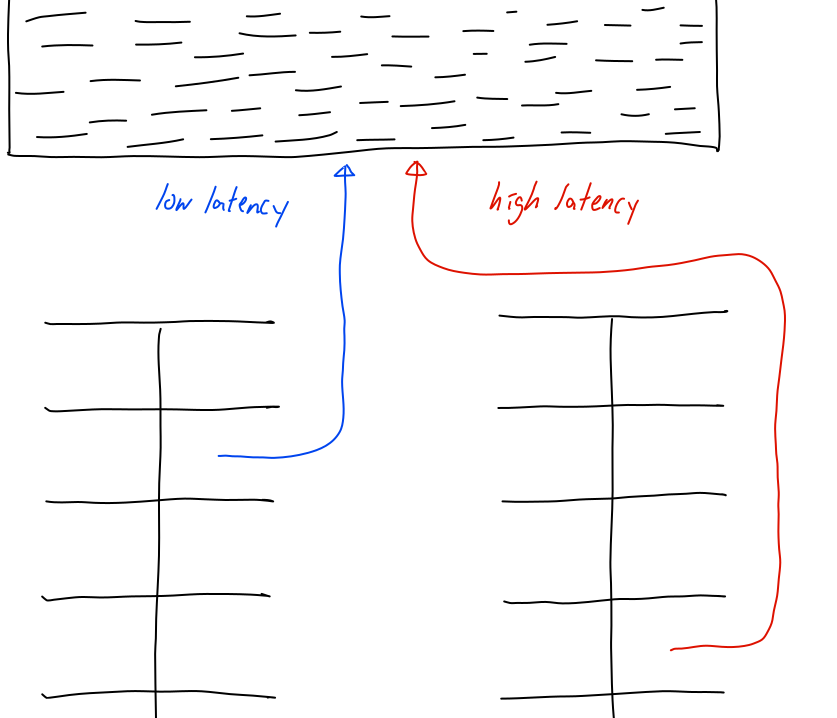 low latency
high latency